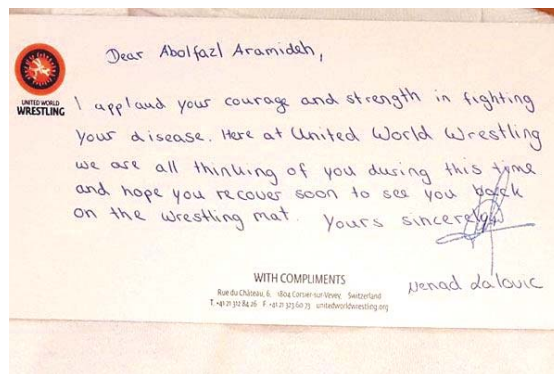 Dear Abolfazl Aramideh,
UNITED WORLD
WRESTLING
I applaud your courage and strength in fighting
your disease. Here at United World Wrestling
we are all thinking of you during this time
and hope you recover soon to see you back
on the wrestling mat. Yours sincerely,
Nenad Lalovic
WITH COMPLIMENTS
Rue du Château, 6, 1804 Corsier-sur-Vevey, Switzerland
T. +41 21 312 84 26 F. +41 21 323 60 73 unitedworldwrestling.org